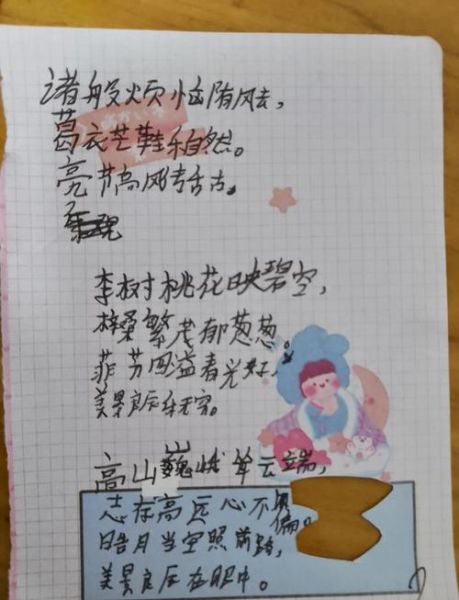 诸般烦恼随风去，
葛衣芒鞋乐自然。
亮节高风传千古。
李树桃花映碧空，
梓桑繁茂郁葱葱。
菲芳四溢春光好，
美景良辰乐无穷。
高山巍峨耸云端，
志存高远心不偏。
皓月当空照前路，
美景良辰在眼中。